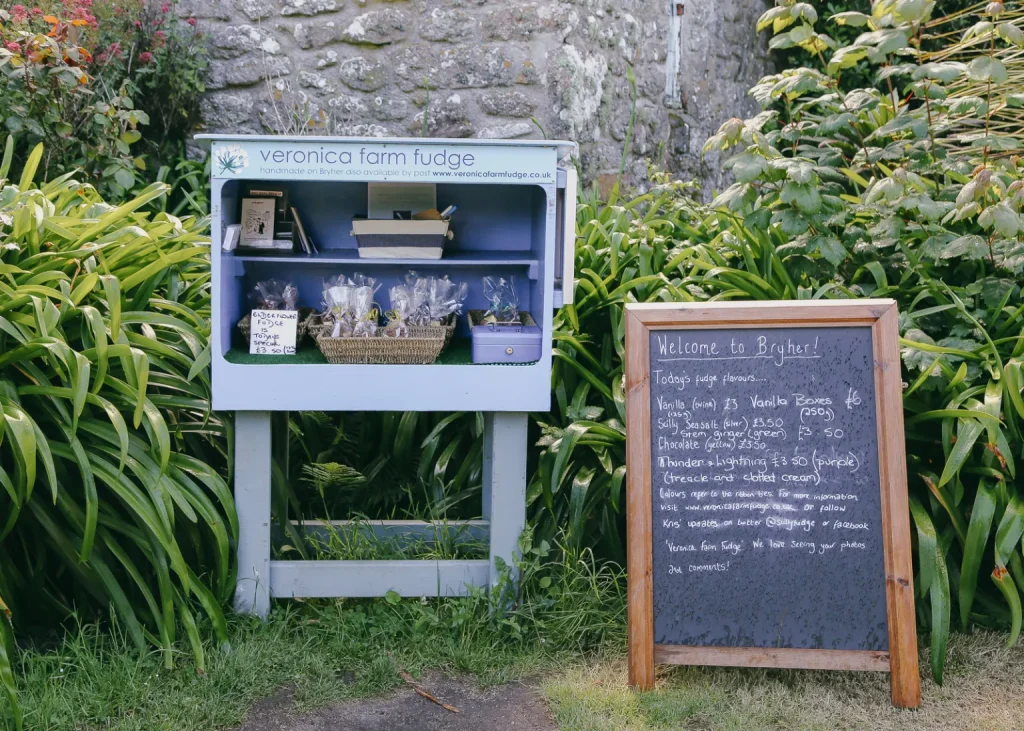 veronica farm fudge
handmade on Bryher also available by post www.veronicafarmfudge.co.uk
ELDERFLOWER
FUDGE
IS
TODAYS
SPECIAL
£3.50
Welcome to Bryher!
Todays fudge flavours....
Vanilla £3 Vanilla Boxes £6
(125g) (250g)
Scilly Seasalt (silver) £3.50
Stem ginger (green) £3 50
Chocolate (yellow) £3.50
Thunder & Lightning £3 50 (purple)
(treacle and clotted cream)
Colours refer to the ribbon ties. For more information
visit www.veronicafarmfudge.co.uk or follow
Kris' updates on twitter @scillyfudge or facebook
'Veronica Farm Fudge'. We love seeing your photos
and comments!